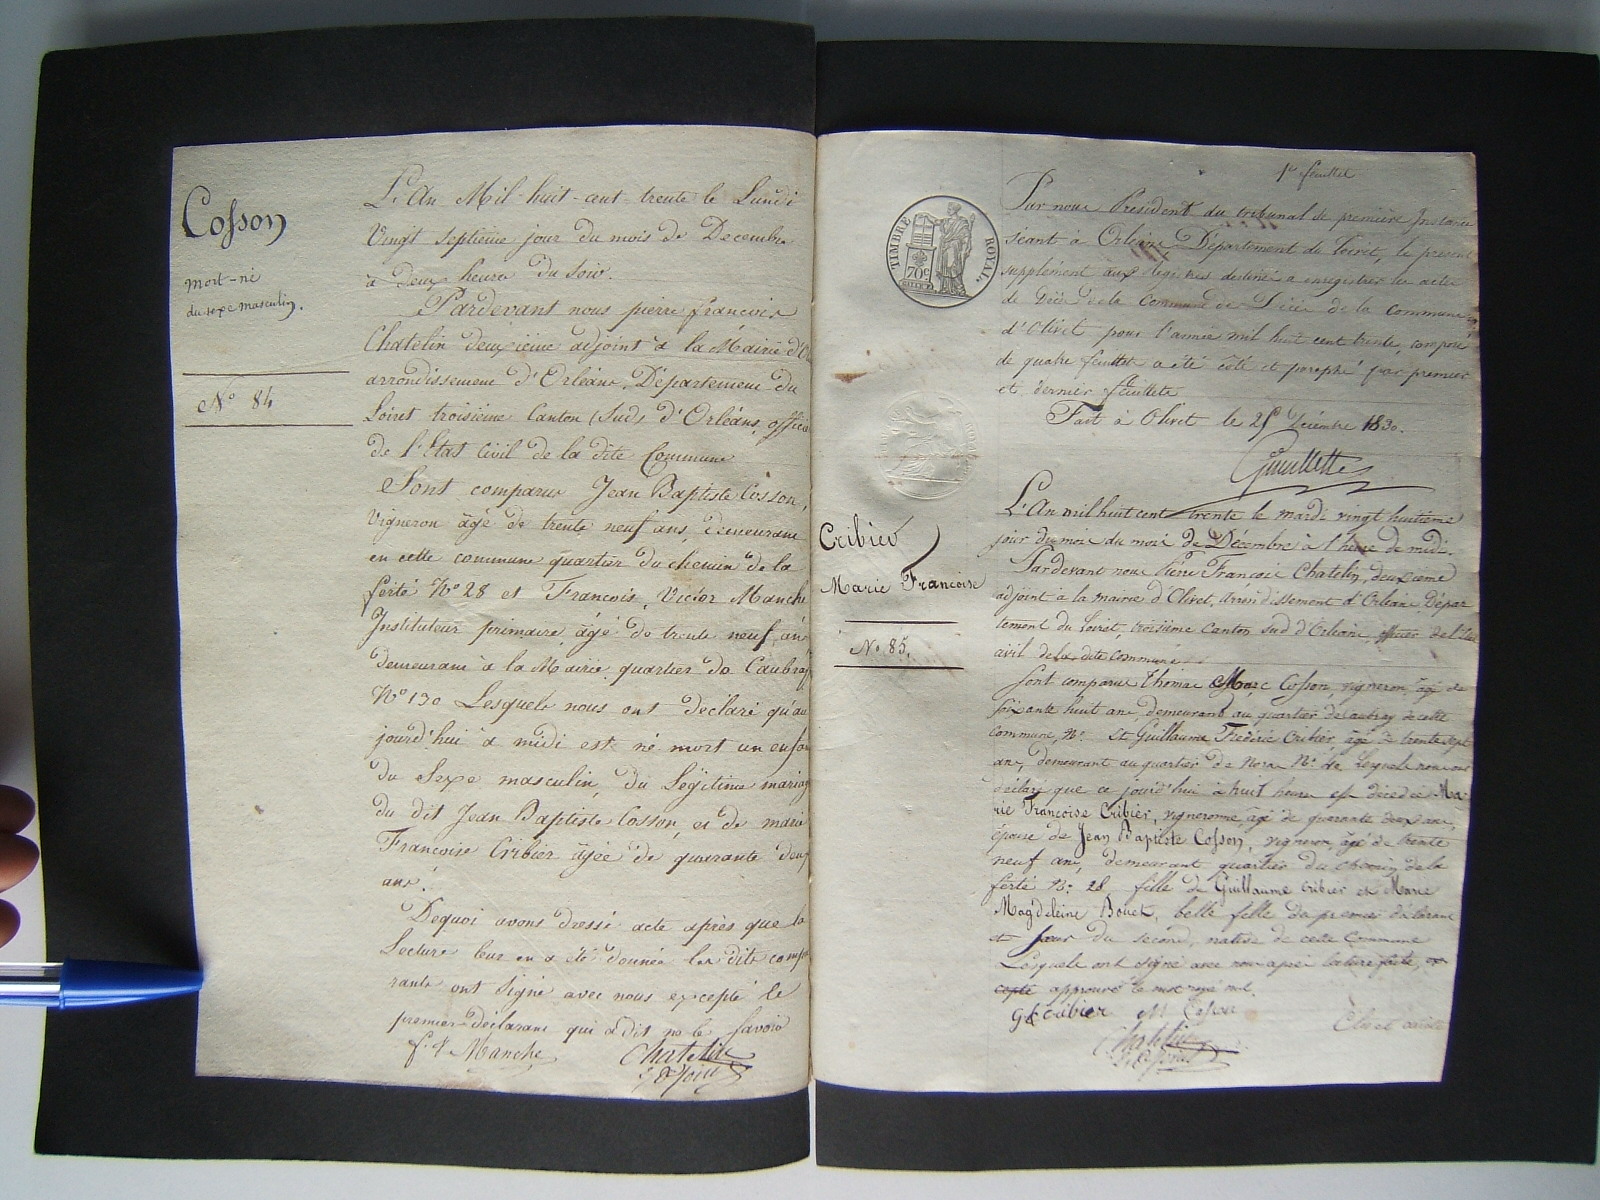 Cosson
mort-né
du sexe masculin.
N° 84
L'An Mil-huit-cent-trente le Lundi
Vingt Septieme jour du mois de Decembre
à deux heures du soir.
Pardevant nous pierre françois
Chatelin deuxieme adjoint à la Mairie d'O
arrondissement d'Orléans, Département du
Loiret troisième Canton (Sud) d'Orléans, offici
de l'Etat Civil de la dite Commune
Sont comparus Jean Baptiste Cosson,
Vigneron âgé de trente neuf ans, demeurant
en cette commune quartier du chemin de la
ferté N° 28 et François, Victor Manche
Instituteur primaire âgé de trente neuf an
demeurant à la Mairie quartier du Caubray
N° 130 Lesquels nous ont déclaré qu'au
jourd'hui à midi est né mort un enfan
du Sexe masculin, du Légitime mariag
du dit Jean Baptiste Cosson, et de marie
Françoise Cribier âgée de quarante deux
ans.
Dequoi avons dressé acte après que la
Lecture leur en a été donnée les dits comp
rants ont Signé avec nous excepté le
premier déclarant qui a dit ne le Savoir
f. V Manche Chatelin
adjoint
1er feuillet
TIMBRE ROYAL.
70c
Par nous Président du tribunal de première Instance
séant à Orléans, Département du Loiret, le présent
supplément aux registres destiné a enregistrer les actes
de Décès de la Commune de Décès de la commune
d'Olivet pour l'année mil huit cent trente, composé
de quatre feuillets a été coté et paraphé par premier
et dernier feuillets
Fait à Olivet le 28 Décembre 1830.
Cribier
Marie Françoise
N° 85.
L'An mil huit cent trente le mardi vingt huitieme
jour du mois du mois de Décembre à l'heure de midi.
Pardevant nous Pierre François Chatelin, deuxieme
adjoint à la mairie d'Olivet, arrondissement d'Orléans Dépar
tement du Loiret, troisième Canton Sud d'Orléans, officier de l'Etat
civil de la dite commune
Sont comparus Thomas Marc Cosson, vigneron, âgé de
soixante huit ans, demeurant au quartier de Caubray de cette
commune, N° et Guillaume Frédéric Cribier, âgé de trente sept
ans, demeurant au quartier de N° Lesquels nous ont
déclaré que ce jourd'hui à huit heures est décédée Ma
rie Françoise Cribier, vigneronne, âgée de quarante deux ans,
épouse de Jean Baptiste Cosson, vigneron, âgé de trente
neuf ans, demeurant quartier du chemin de la
ferté N° 28, fille de Guillaume Cribier et Marie
Magdeleine Bouet, belle fille du premier déclarant
et soeur du second, native de cette Commune
Lesquels ont signé avec nous après lecture faite, ex
cepté approuvé le mot rayé nul.
G f Cribier M Cosson
Chatelin
adjoint